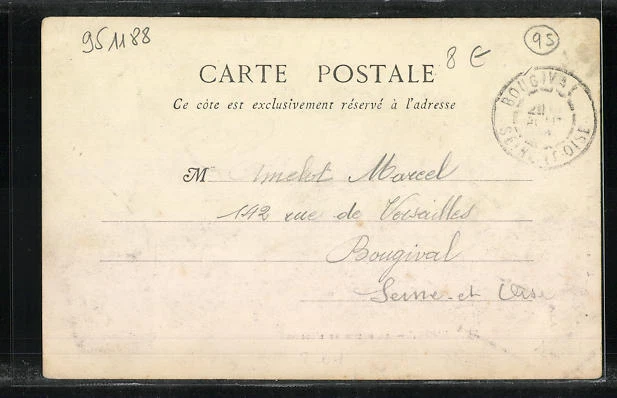 951188
8 €
95
CARTE POSTALE
Ce côté est exclusivement réservé à l'adresse
BOUGIVAL
SEINE ET OISE
M Imelot Marcel
142 rue de Versailles
Bougival
Seine-et Oise